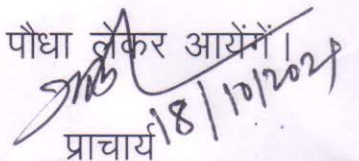 पौधा लेकर आयेंगें।
18/10/2021
प्राचार्य